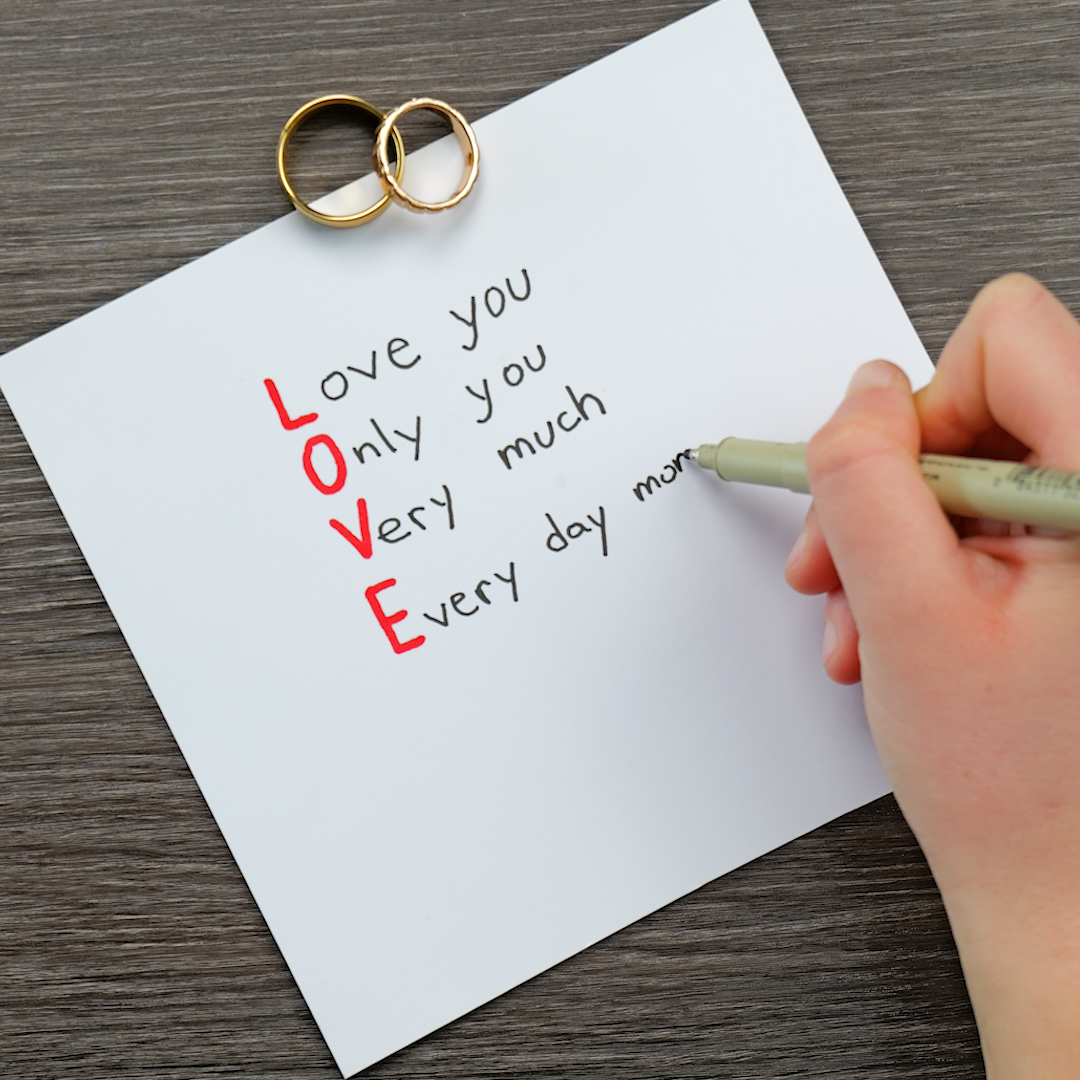 Love you
Only you
Very much
Every day mor